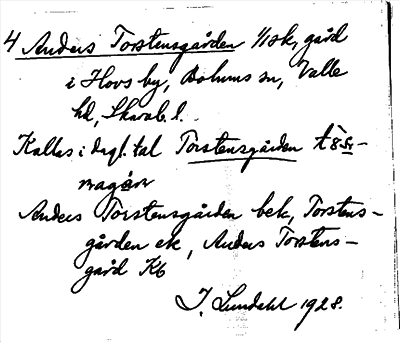 4 Anders Torstensgården 1/1 sk, gård
i Hovs by, Bolums sn, Valle
hd, Skarab. l.
Kallas i dagl. tal Torstensgården
Anders Torstensgården bek, Torstens-
gården ek, Anders Torstens-
gård Kb
J. Lundahl 1928.